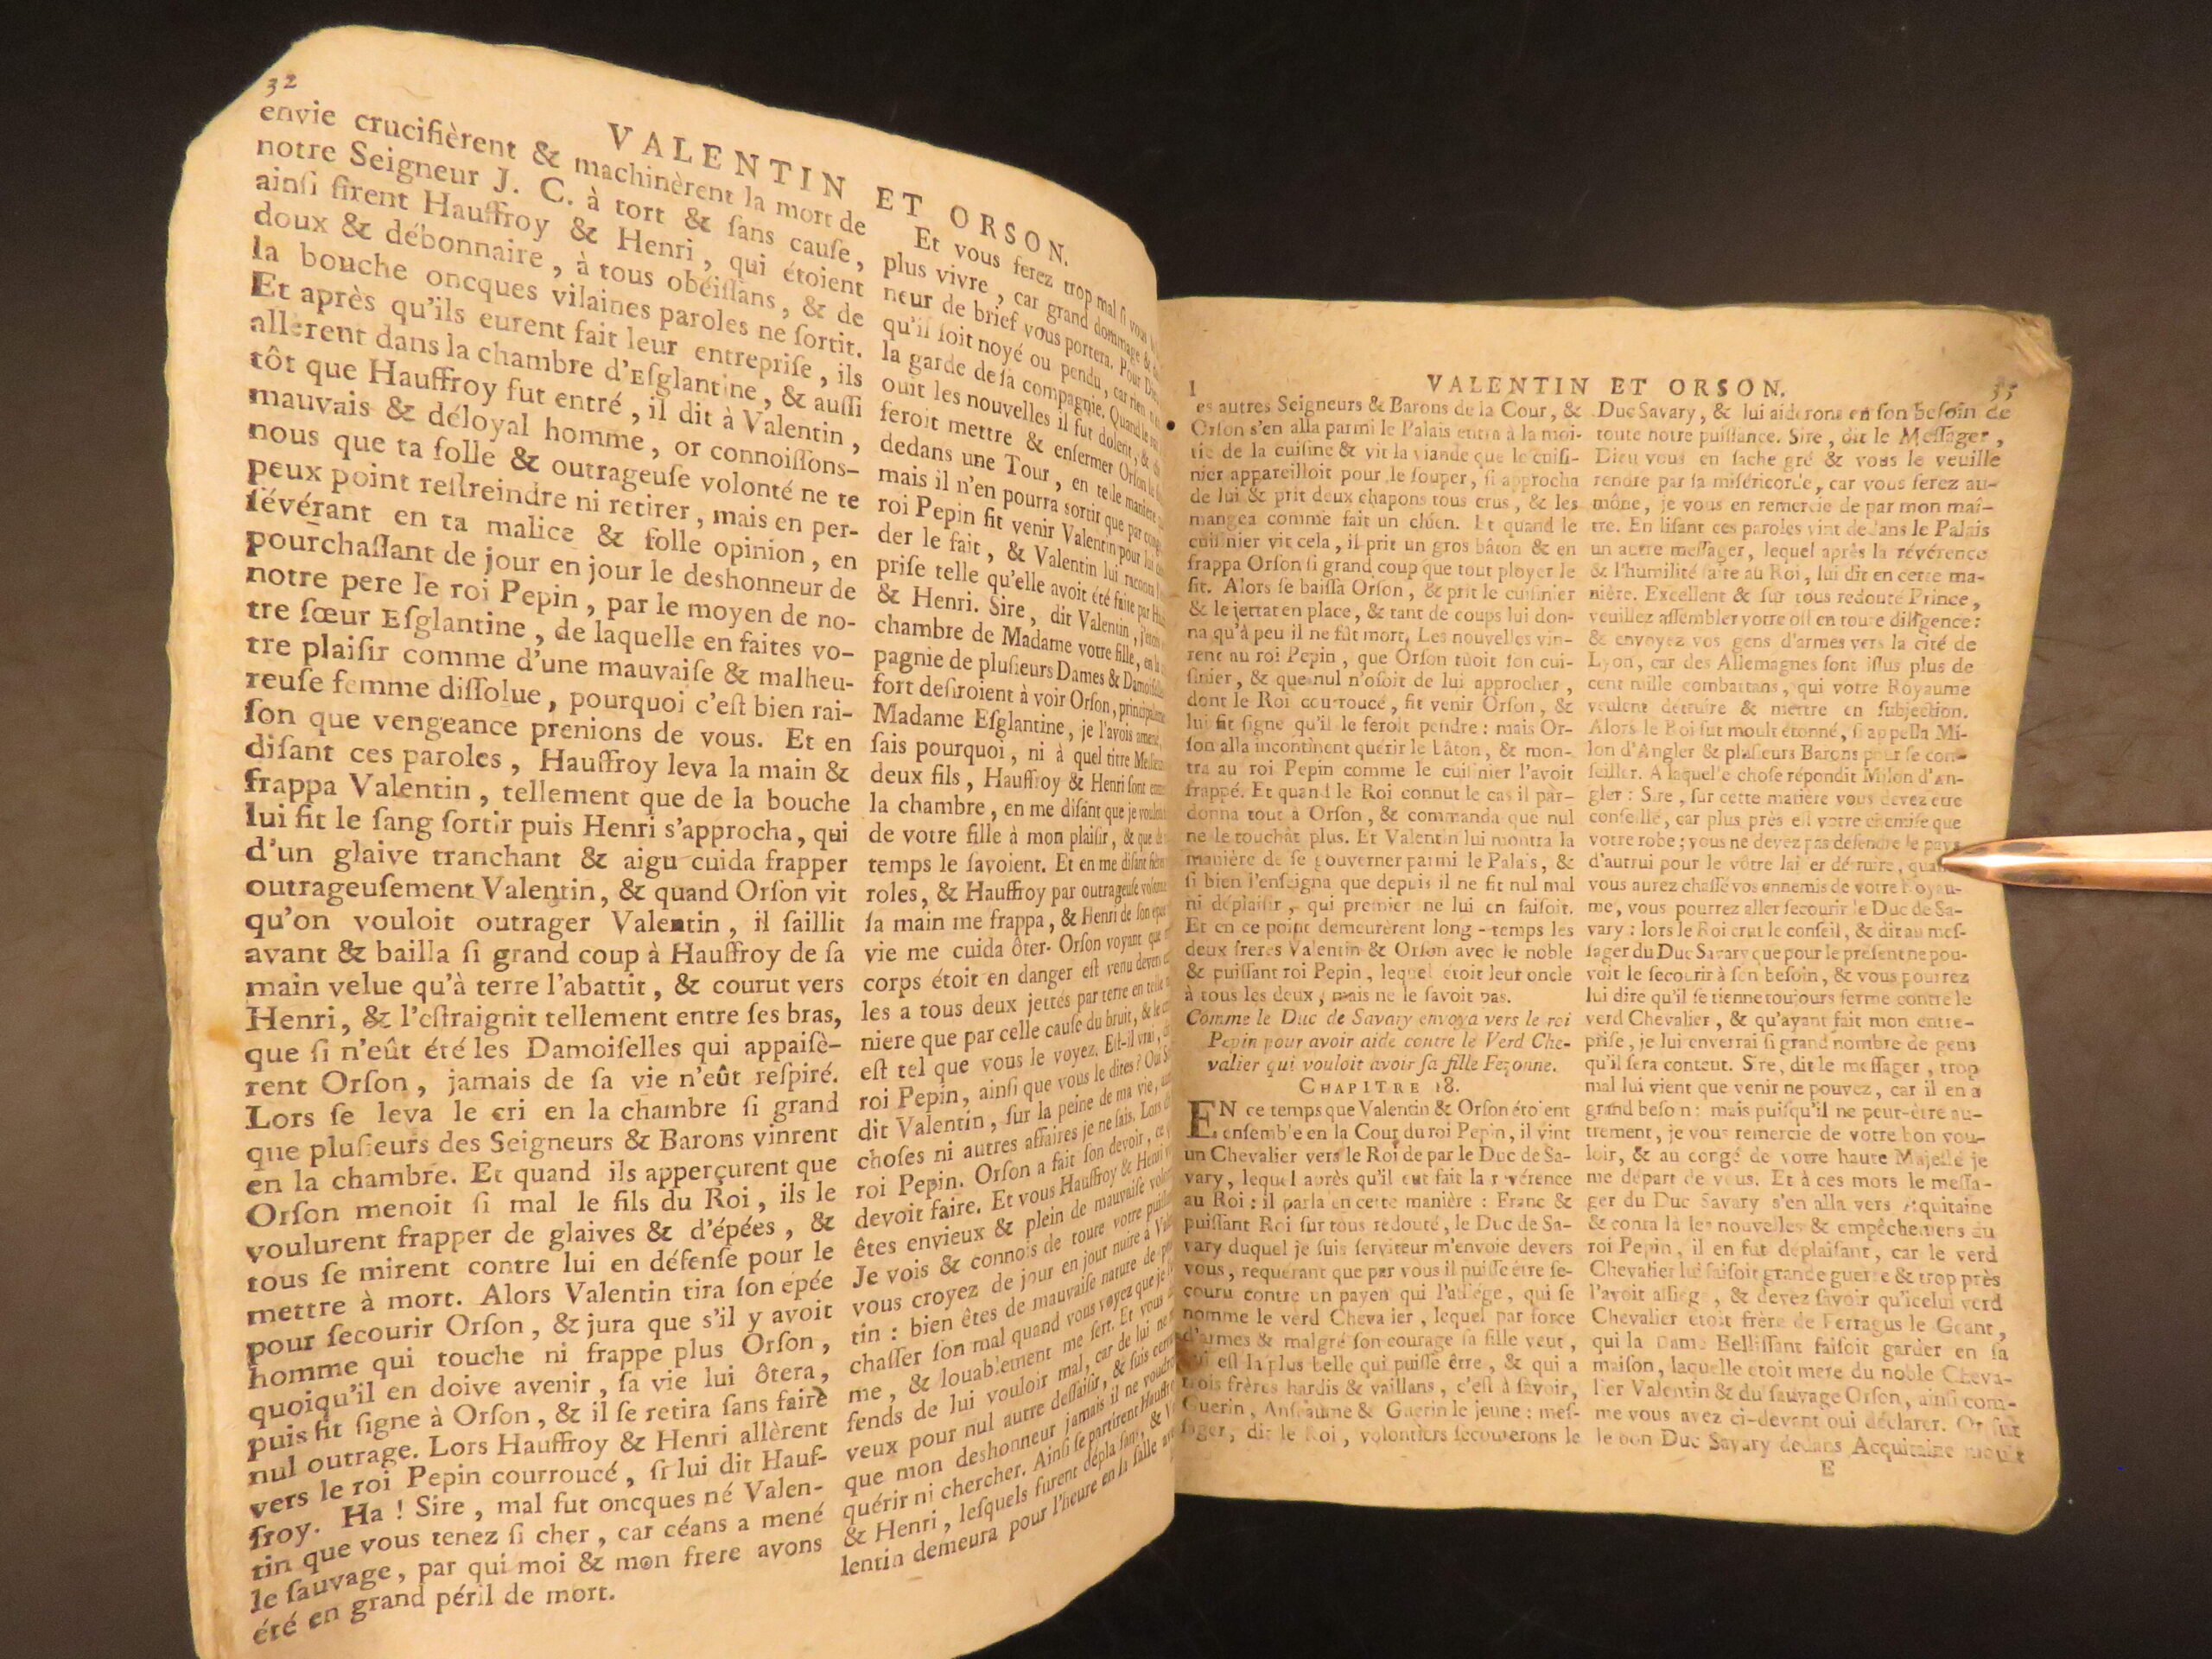 32
VALENTIN ET ORSON.
envie crucifièrent & machinèrent la mort de
notre Seigneur J. C. à tort & ſans cauſe,
ainſi firent Hauffroy & Henri, qui étoient
doux & débonnaire, à tous obéiſſans, & de
la bouche oncques vilaines paroles ne ſortit.
Et après qu'ils eurent fait leur entrepriſe, ils
allèrent dans la chambre d'Eſglantine, & auſſi
tôt que Hauffroy fut entré, il dit à Valentin,
mauvais & déloyal homme, or connoiſſons-
nous que ta folle & outrageuſe volonté ne te
peux point reſtreindre ni retirer, mais en per-
ſévérant en ta malice & folle opinion, en
pourchaſſant de jour en jour le deshonneur de
notre pere le roi Pepin, par le moyen de no-
tre ſœur Eſglantine, de laquelle en faites vo-
tre plaiſir comme d'une mauvaiſe & malheu-
reuſe femme diſſolue, pourquoi c'eſt bien rai-
ſon que vengeance prenions de vous. Et en
diſant ces paroles, Hauffroy leva la main &
frappa Valentin, tellement que de la bouche
lui fit le ſang ſortir puis Henri s'approcha, qui
d'un glaive tranchant & aigu cuida frapper
outrageuſement Valentin, & quand Orſon vit
qu'on vouloit outrager Valentin, il ſaillit
avant & bailla ſi grand coup à Hauffroy de ſa
main velue qu'à terre l'abattit, & courut vers
Henri, & l'eſtraignit tellement entre ſes bras,
que ſi n'eût été les Damoiſelles qui appaiſè-
rent Orſon, jamais de ſa vie n'eût reſpiré.
Lors ſe leva le cri en la chambre ſi grand
que pluſieurs des Seigneurs & Barons vinrent
en la chambre. Et quand ils apperçurent que
Orſon menoit ſi mal le fils du Roi, ils le
voulurent frapper de glaives & d'épées, &
tous ſe mirent contre lui en défenſe pour le
mettre à mort. Alors Valentin tira ſon épée
pour ſecourir Orſon, & jura que s'il y avoit
homme qui touche ni frappe plus Orſon,
quoiqu'il en doive avenir, ſa vie lui ôtera,
puis fit ſigne à Orſon, & il ſe retira ſans faire
nul outrage. Lors Hauffroy & Henri allèrent
vers le roi Pepin courroucé, ſi lui dit Hauf-
froy. Ha ! Sire, mal fut oncques né Valen-
tin que vous tenez ſi cher, car céans a mené
le ſauvage, par qui moi & mon frere avons
été en grand péril de mort.
Et vous ferez trop mal ſi vous
plus vivre, car grand dommage &
neur de brief vous portera. Pour
qu'il ſoit noyé ou pendu, car rien
la garde de ſa compagnie. Quand le
ouit les nouvelles il fut dolent, &
feroit mettre & enfermer Orſon
dedans une Tour, en telle manière
mais il n'en pourra sortir que par
roi Pepin fit venir Valentin pour lui
der le fait, & Valentin lui raconta
priſe telle qu'elle avoit été faite par
& Henri. Sire, dit Valentin, j'étois
chambre de Madame votre fille, en
pagnie de pluſieurs Dames &
fort deſiroient à voir Orſon,
Madame Eſglantine, je l'avois amené,
ſais pourquoi, ni à quel titre
deux fils, Hauffroy & Henri ſont
la chambre, en me diſant que je
de votre fille à mon plaiſir, & que
temps le ſavoient. Et en me diſant
roles, & Hauffroy par outrageuſe
ſa main me frappa, & Henri de ſon
vie me cuida ôter. Orſon voyant que
corps étoit en danger eſt venu
les a tous deux jettés par terre en telle
niere que par celle cauſe du bruit, &
eſt tel que vous le voyez. Eſt-il vrai,
roi Pepin, ainſi que vous le dites ? Oui
dit Valentin, ſur la peine de ma vie,
choſes ni autres affaires je ne ſais. Lors
roi Pepin. Orſon a fait ſon devoir,
devoit faire. Et vous Hauffroy & Henri
êtes envieux & plein de mauvaiſe
Je vois & connois de toute votre
vous croyez de jour en jour nuire à
tin : bien êtes de mauvaiſe nature de
chaſſer ſon mal quand vous voyez que je
me, & louablement me ſert. Et vous
fends de lui vouloir mal, car de lui ne
veux pour nul autre deſſaiſir, & ſuis
que mon deshonneur jamais il ne
quérir ni chercher. Ainſi ſe partirent
& Henri, leſquels furent déplaiſans, &
lentin demeura pour l'heure en la ſalle
VALENTIN ET ORSON.
es autres Seigneurs & Barons de la Cour, &
Orſon s'en alla parmi le Palais entra à la moi-
tié de la cuiſine & vit la viande que le cuiſi-
nier appareilloit pour le ſouper, ſi approcha
de lui & prit deux chapons tous crus, & les
mangea comme fait un chien. Et quand le
cuiſinier vit cela, il prit un gros bâton & en
frappa Orſon ſi grand coup que tout ployer le
fit. Alors ſe baiſſa Orſon, & prit le cuiſinier
& le jetta en place, & tant de coups lui don-
na qu'à peu il ne fût mort. Les nouvelles vin-
rent au roi Pepin, que Orſon tuoit ſon cui-
ſinier, & que nul n'oſoit de lui approcher,
dont le Roi courroucé, fit venir Orſon, &
lui fit ſigne qu'il le feroit pendre : mais Or-
ſon alla incontinent quérir le bâton, & mon-
tra au roi Pepin comme le cuiſinier l'avoit
frappé. Et quand le Roi connut le cas il par-
donna tout à Orſon, & commanda que nul
ne le touchât plus. Et Valentin lui montra la
manière de ſe gouverner parmi le Palais, &
ſi bien l'enſeigna que depuis il ne fit nul mal
ni déplaiſir, qui premier ne lui en faiſoit.
Et en ce point demeurèrent long-temps les
deux freres Valentin & Orſon avec le noble
& puiſſant roi Pepin, lequel étoit leur oncle
à tous les deux, mais ne le ſavoit pas.
Comme le Duc de Savary envoya vers le roi
Pepin pour avoir aide contre le Verd Che-
valier qui vouloit avoir ſa fille Fezonne.
CHAPITRE 18.
EN ce temps que Valentin & Orſon étoient
enſemble en la Cour du roi Pepin, il vint
un Chevalier vers le Roi de par le Duc de Sa-
vary, lequel après qu'il eut fait la révérence
au Roi : il parla en cette manière : Franc &
puiſſant Roi ſur tous redouté, le Duc de Sa-
vary duquel je ſuis ſerviteur m'envoie devers
vous, requérant que par vous il puiſſe être ſe-
couru contre un payen qui l'aſſiége, qui ſe
nomme le verd Chevalier, lequel par force
d'armes & malgré ſon courage ſa fille veut,
qui eſt la plus belle qui puiſſe être, & qui a
trois frères hardis & vaillans, c'eſt à ſavoir,
Guerin, Anſeaume & Guerin le jeune : meſ-
ſager, dit le Roi, volontiers ſecourerons le
Duc Savary, & lui aiderons en ſon beſoin de
toute notre puiſſance. Sire, dit le Meſſager,
Dieu vous en ſache gré & vous le veuille
rendre par ſa miſéricorde, car vous ferez au-
mône, je vous en remercie de par mon maî-
tre. En liſant ces paroles vint dedans le Palais
un autre meſſager, lequel après la révérence
& l'humilité faite au Roi, lui dit en cette ma-
nière. Excellent & ſur tous redouté Prince,
veuillez aſſembler votre oſt en toute diligence :
& envoyez vos gens d'armes vers la cité de
Lyon, car des Allemagnes ſont iſſus plus de
cent mille combattans, qui votre Royaume
veulent détruire & mettre en ſubjection.
Alors le Roi fut moult étonné, ſi appella Mi-
lon d'Angler & pluſieurs Barons pour ſe con-
ſeiller. A laquelle choſe répondit Milon d'An-
gler : Sire, ſur cette matiere vous devez être
conſeillé, car plus près eſt votre chemiſe que
votre robe ; vous ne devez pas défendre le pays
d'autrui pour le vôtre laiſſer détruire,
vous aurez chaſſé vos ennemis de votre Royau-
me, vous pourrez aller ſecourir le Duc de Sa-
vary : lors le Roi crut le conſeil, & dit au meſ-
ſager du Duc Savary que pour le préſent ne pou-
voit le ſecourir à ſon beſoin, & vous pourrez
lui dire qu'il ſe tienne toujours ferme contre le
verd Chevalier, & qu'ayant fait mon entre-
priſe, je lui enverrai ſi grand nombre de gens
qu'il ſera content. Sire, dit le meſſager, trop
mal lui vient que venir ne pouvez, car il en a
grand beſoin : mais puiſqu'il ne peut-être au-
trement, je vous remercie de votre bon vou-
loir, & au congé de votre haute Majeſté je
me départ de vous. Et à ces mots le meſſa-
ger du Duc Savary s'en alla vers Aquitaine
& conta là les nouvelles & empêchemens du
roi Pepin, il en fut déplaiſant, car le verd
Chevalier lui faiſoit grande guerre & trop près
l'avoit aſſiégé, & devez ſavoir qu'icelui verd
Chevalier étoit frère de Ferragus le Géant,
qui la Dame Belliſſant faiſoit garder en ſa
maiſon, laquelle étoit mere du noble Cheva-
lier Valentin & du ſauvage Orſon, ainſi com-
me vous avez ci-devant oui déclarer. Or fut
le bon Duc Savary dedans Acquitaine moult
E